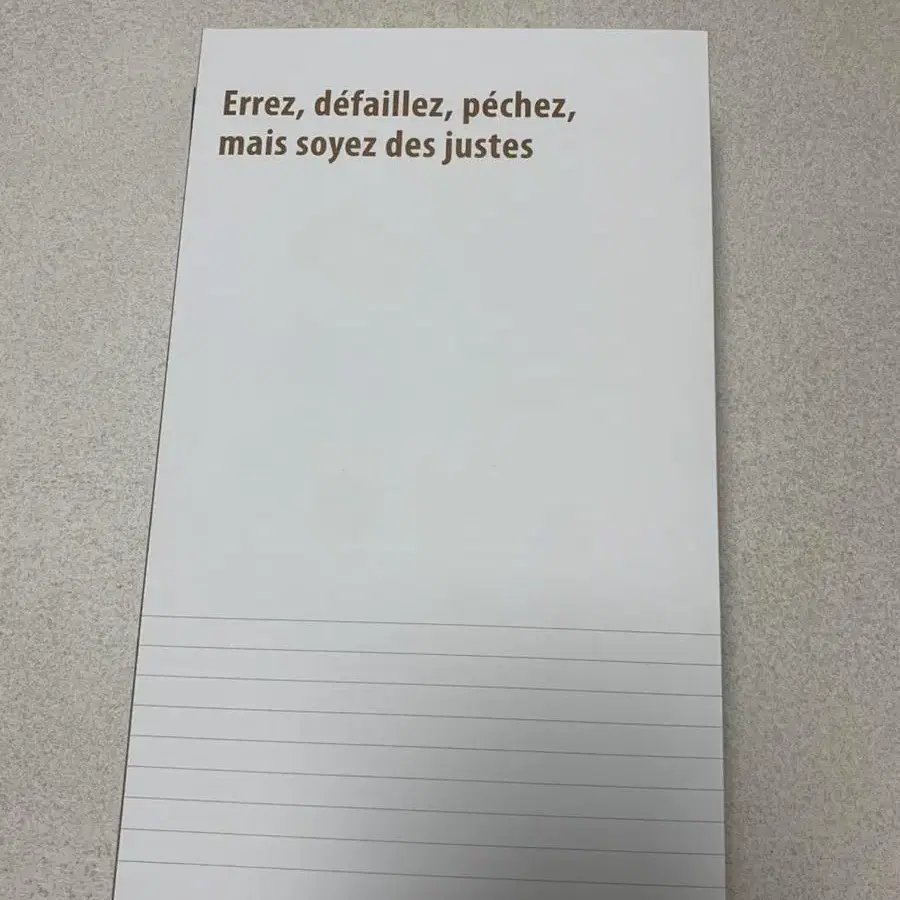 Errez, défaillez, péchez,
mais soyez des justes